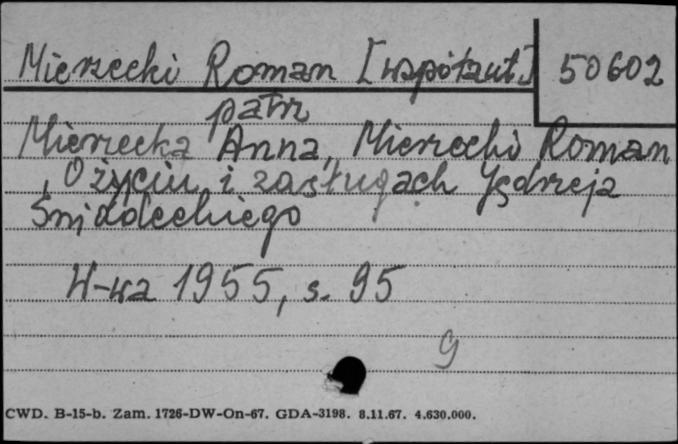 Mierzecki Roman [współaut.] 50602
patrz
Mierzecka Anna, Mierzecki Roman
, O życiu i zasługach Jędrzeja
Śniadeckiego
W-wa 1955, s. 95
g
CWD. B-15-b. Zam. 1726-DW-On-67. GDA-3198. 8.11.67. 4.630.000.